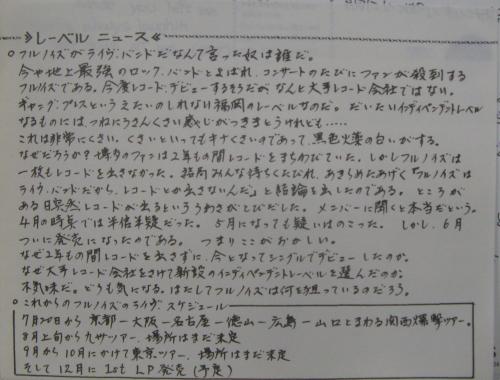 ≫レーベル ニュース≪
○フルノイズがライヴ・バンドだなんて言った奴は誰だ。
今や地上最強のロック・バンドとよばれ、コンサートのたびにファンが殺到する
フルノイズである。今度レコード・デビューするそうだが、なんと大手レコード会社ではない。
ギャング・プレスというえたいのしれない福岡のレーベルなのだ。だいたいインディペンデントレーベル
なるものには、つねにうさんくさい感じがつきまとうけれども……
これは非常にくさい。くさいといってもキナくさいのであって、黒色火薬の匂いがする。
なぜだろうか?博多のファンは2年もの間レコードをまちわびていた。しかしフルノイズは
一枚もレコードを出さなかった。結局みんな待ちくたびれ、あきらめたあげく『フルノイズは
ライヴ・バンドだから、レコードとか出さないんだ』と結論を出したのである。ところが
ある日突然レコードが出るといううわさがとびだした。メンバーに聞くと本当だという。
4月の時点では半信半疑だった。5月になっても疑いはのこった。しかし、6月
ついに発売になったのである。つまりここがおかしい。
なぜ2年もの間レコードを出さずに、今となってシングルでデビューしたのか。
なぜ大手レコード会社をさけて新設のインディペンデントレーベルを選んだのか。
不気味だ。どうも気になる。はたしてフルノイズは何を狙っているのだろう。
○これからのフルノイズのライヴ スケジュール
7月20日から 京都ー大阪ー名古屋ー徳山ー広島ー山口とまわる関西爆撃ツアー。
8月上旬から九州ツアー、場所はまだ未定
9月から10月にかけて東京ツアー、場所はまだ未定
そして12月に 1st LP発売(予定)